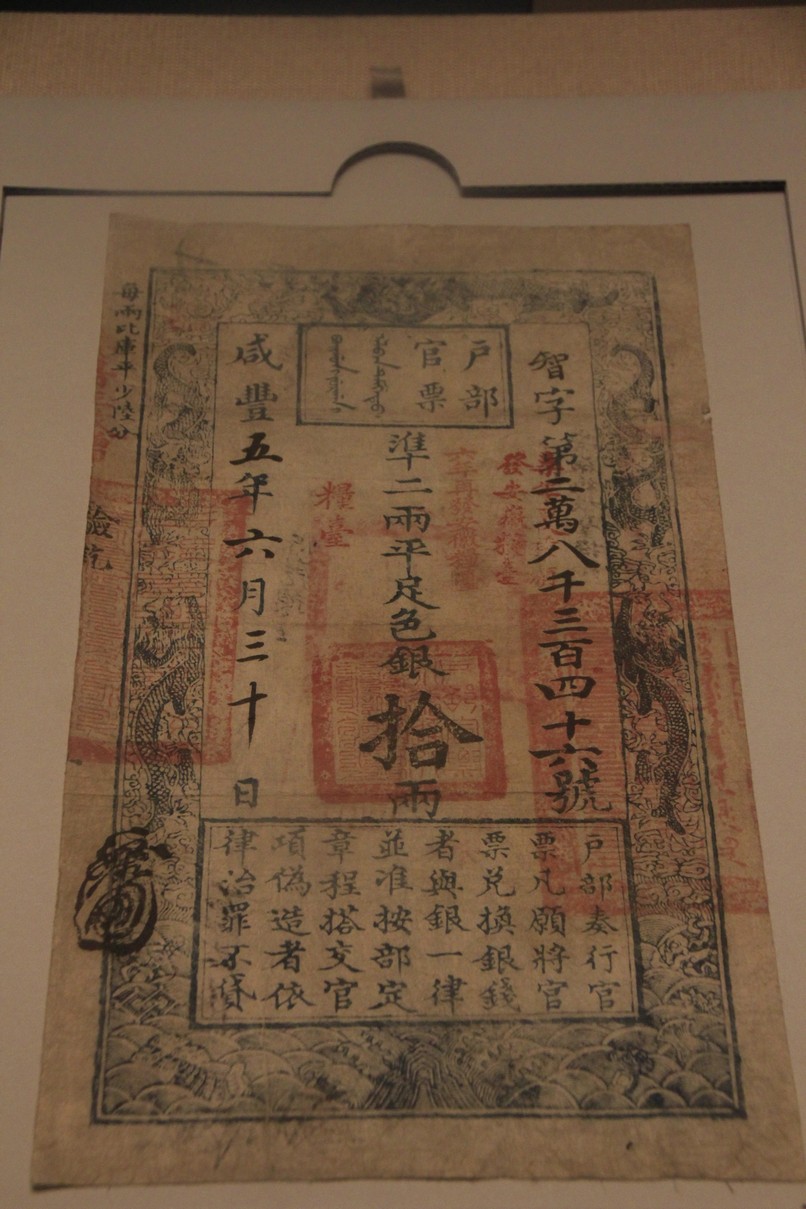 戶部
官票
智字第二萬八千三百四十六號
發安徽糧臺
準二兩平足色銀拾兩
糧臺
咸豐五年六月三十日
每兩比庫平少陸分
驗訖
戶部奏行官
票凡願將官
票兌換銀錢
者與銀一律
並准按部定
章程搭交官
項偽造者依
律治罪不貸